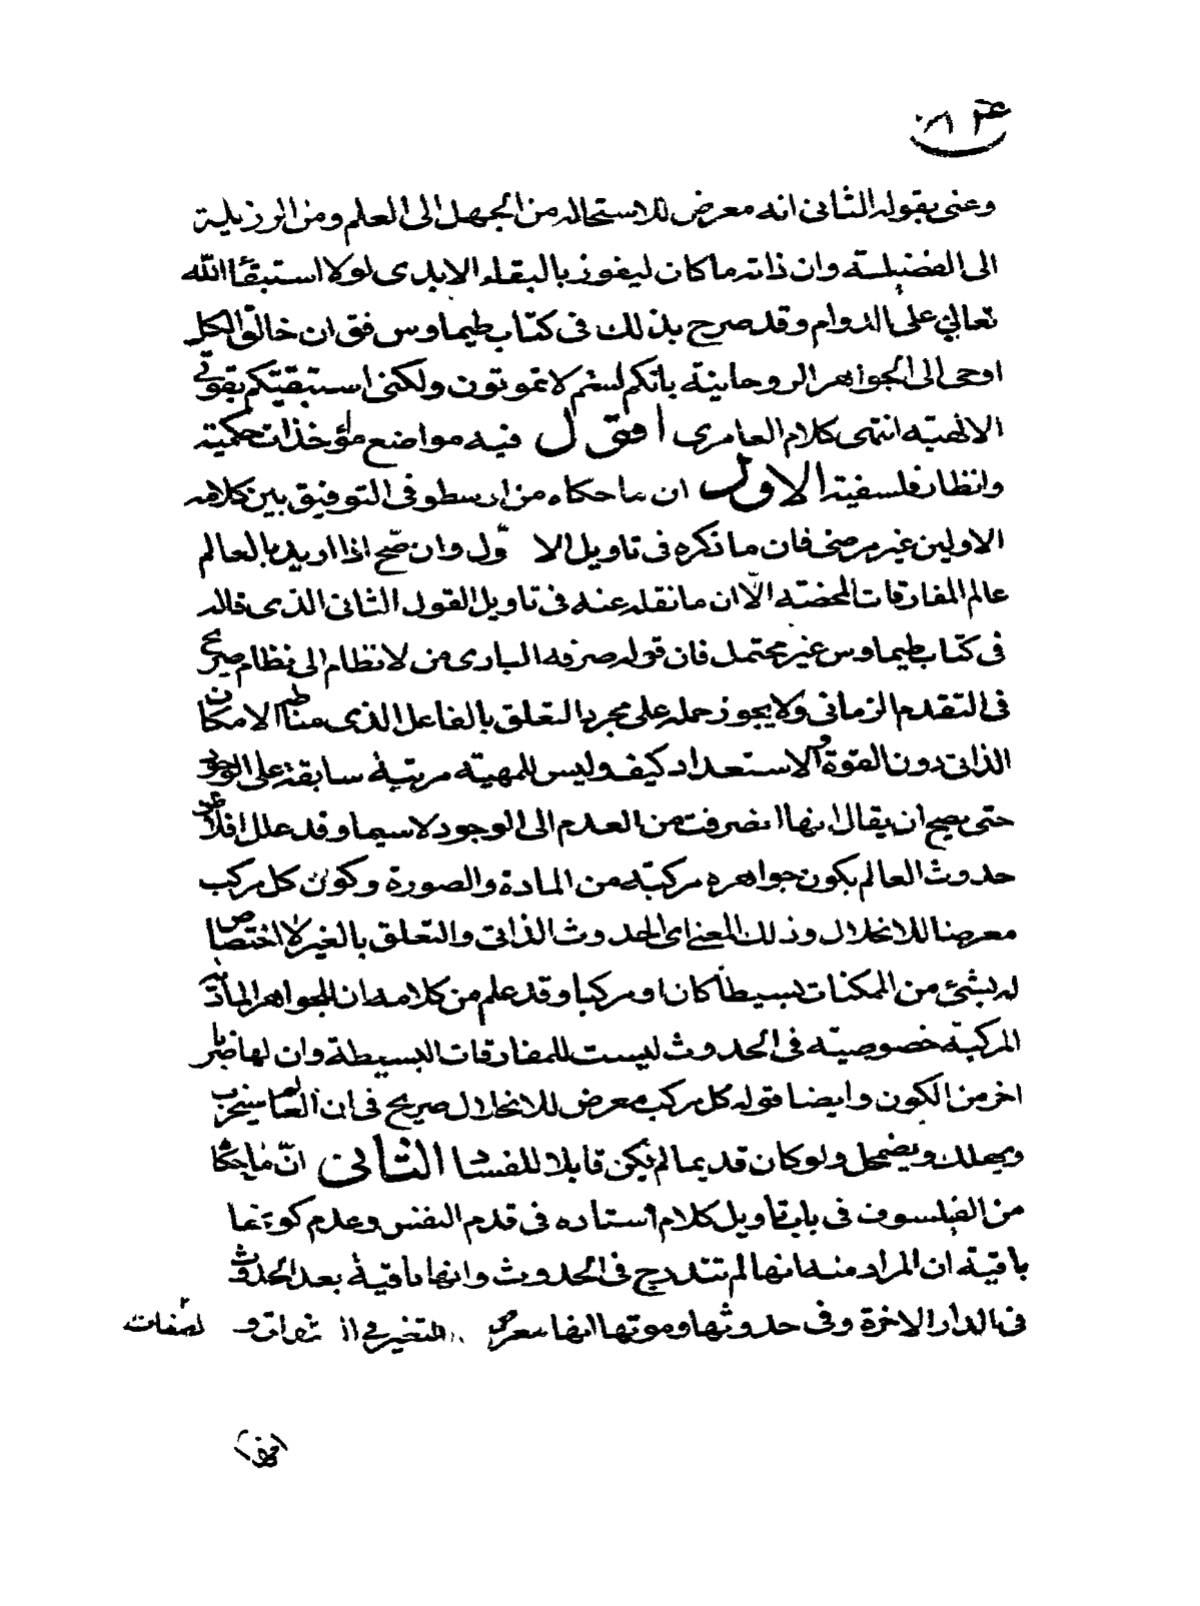 وعنى بقوله الثانى انه معرض للاستحاله من الجهل الى العلم ومن الرزيلة
الى الفضيلة وان ذاته ما كان ليفوز بالبقاء الابدى لولا استبقاء الله
تعالى على الدوام وقد صرح بذلك فى كتاب طيماوس فق ان خالق الكل
اوحى الى الجواهر الروحانية بانكم لستم لا تموتون ولكنى استبقيتكم بقوتى
الالهية انتهى كلام العامرى اقول فيه مواضع مؤخذات حكمية
وانظار فلسفية الاول ان ما حكاه من ارسطو فى التوفيق بين كلامه
الاولين غير مرضى فان ما ذكره فى تاويل الا ول وان صح اذا اريد بالعالم
عالم المفارقات المحضة الا ان ما نقله عنه فى تاويل القول الثانى الذى قاله
فى كتاب طيماوس غير محتمل فان قوله صرفه البارى من لا نظام الى نظام صريح
فى التقدم الزمانى ولا يجوز حمله على مجرد التعلق بالفاعل الذى مناطه الامكان
الذاتى دون القوة والاستعداد كيف وليس للمهية مرتبة سابقة على الوجود
حتى يصح ان يقال انها انصرفت من العدم الى الوجود لا سيما وقد علل افلاطن
حدوث العالم بكون جواهره مركبة من المادة والصورة وكون كل مركب
معرضا للانحلال وذلك المعنى اى الحدوث الذاتى والتعلق بالغير لا اختصاص
له بشئ من الممكنات بسيطا كان او مركبا وقد علم من كلامه ان للجواهر المادية
المركبة خصوصية فى الحدوث ليست للمفارقات البسيطة وان لها ضربا
اخر من الكون وايضا قوله كل مركب معرض للانحلال صريح فى ان العالم سيخرب
ويهلك ويضمحل ولو كان قديما لم يكن قابلا للفساد الثانى ان ما حكاه
من الفيلسوف فى باب تاويل كلام استاده فى قدم النفس وعدم كونها
باقية ان المراد منه انها لم تتدرج فى الحدوث وانها باقية بعد الحدوث
فى الدار الاخرة وفى حدوثها وموتها انها معرض التغير فى